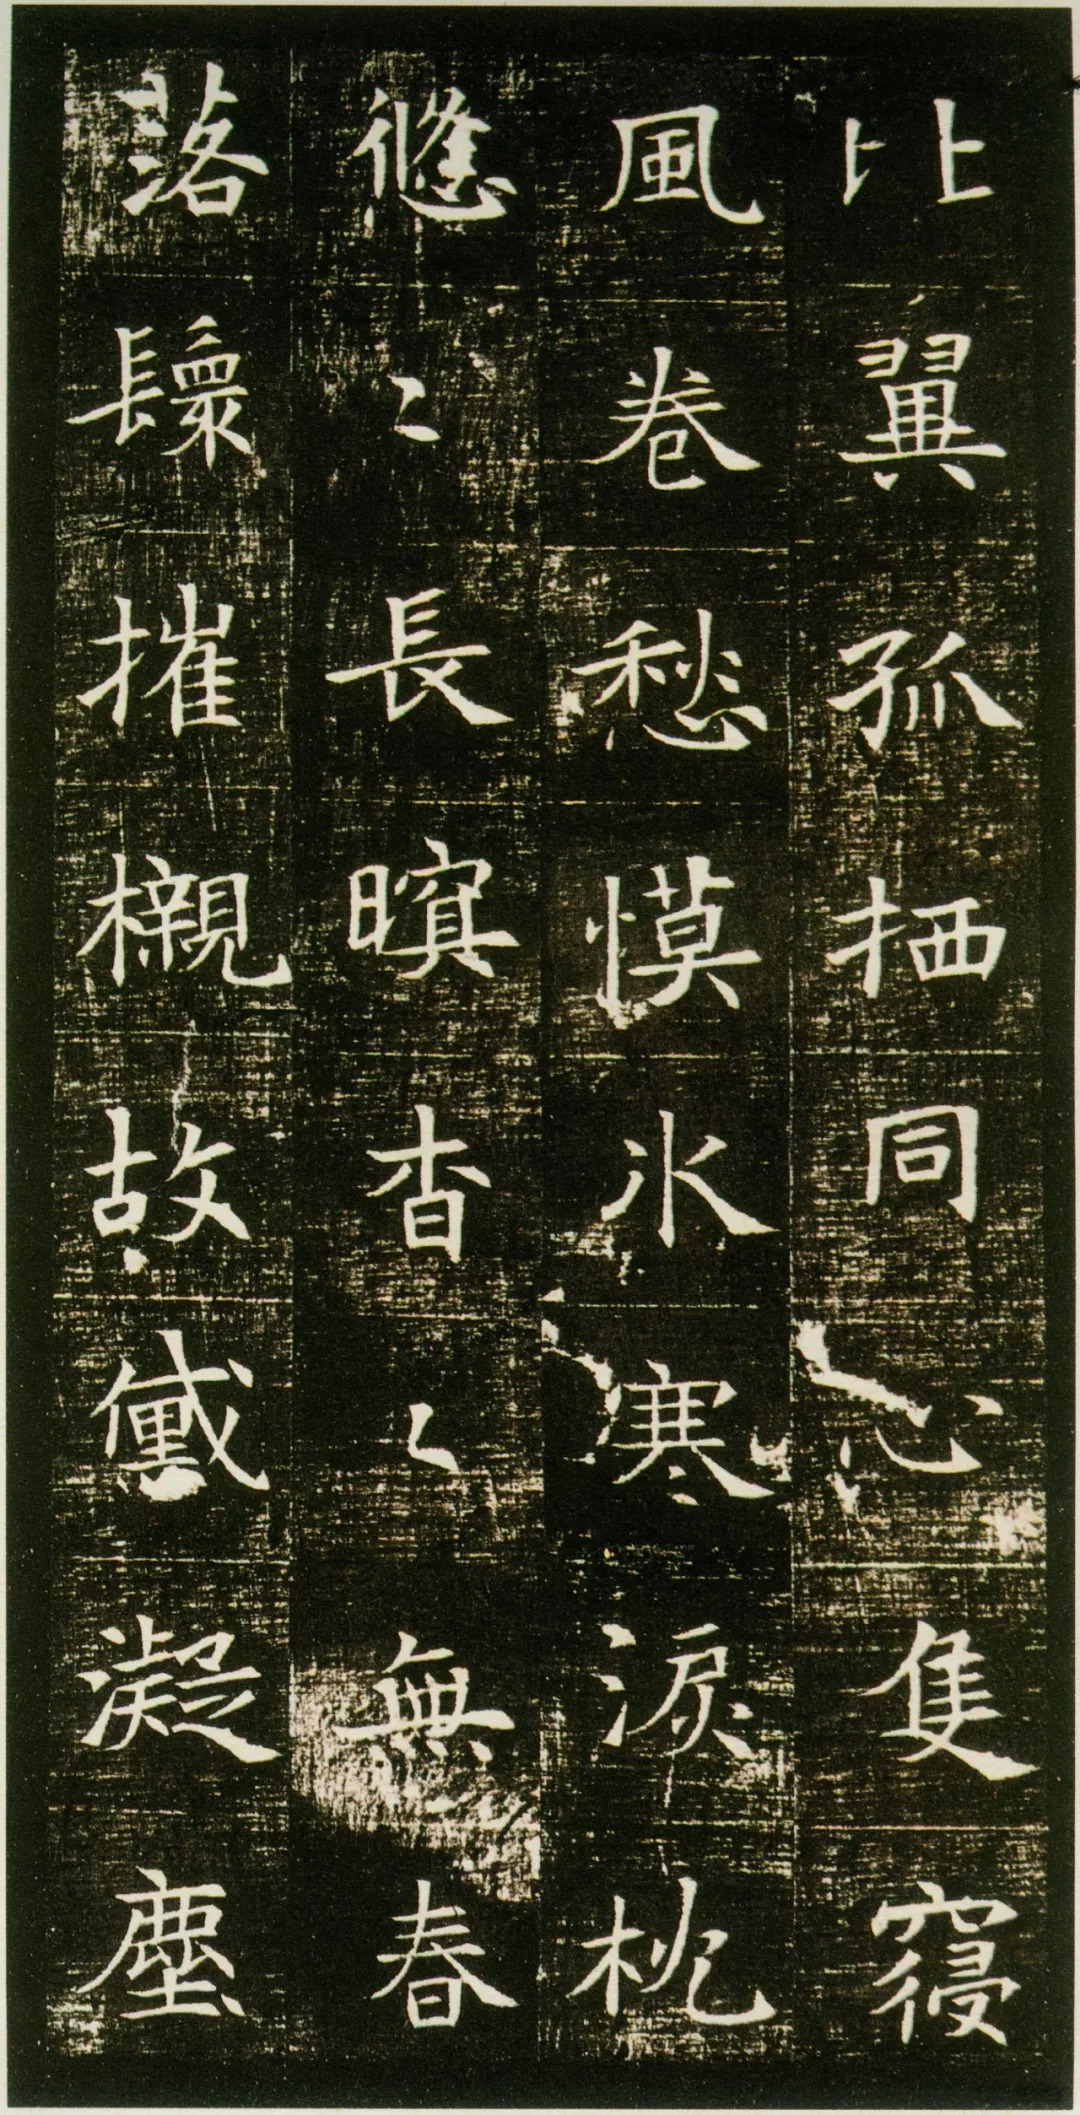 比翼孤栖同心隻寢
風卷愁慔水寒淚枕
悠〻長暝杳〻無春
落鬟摧櫬故黛凝塵